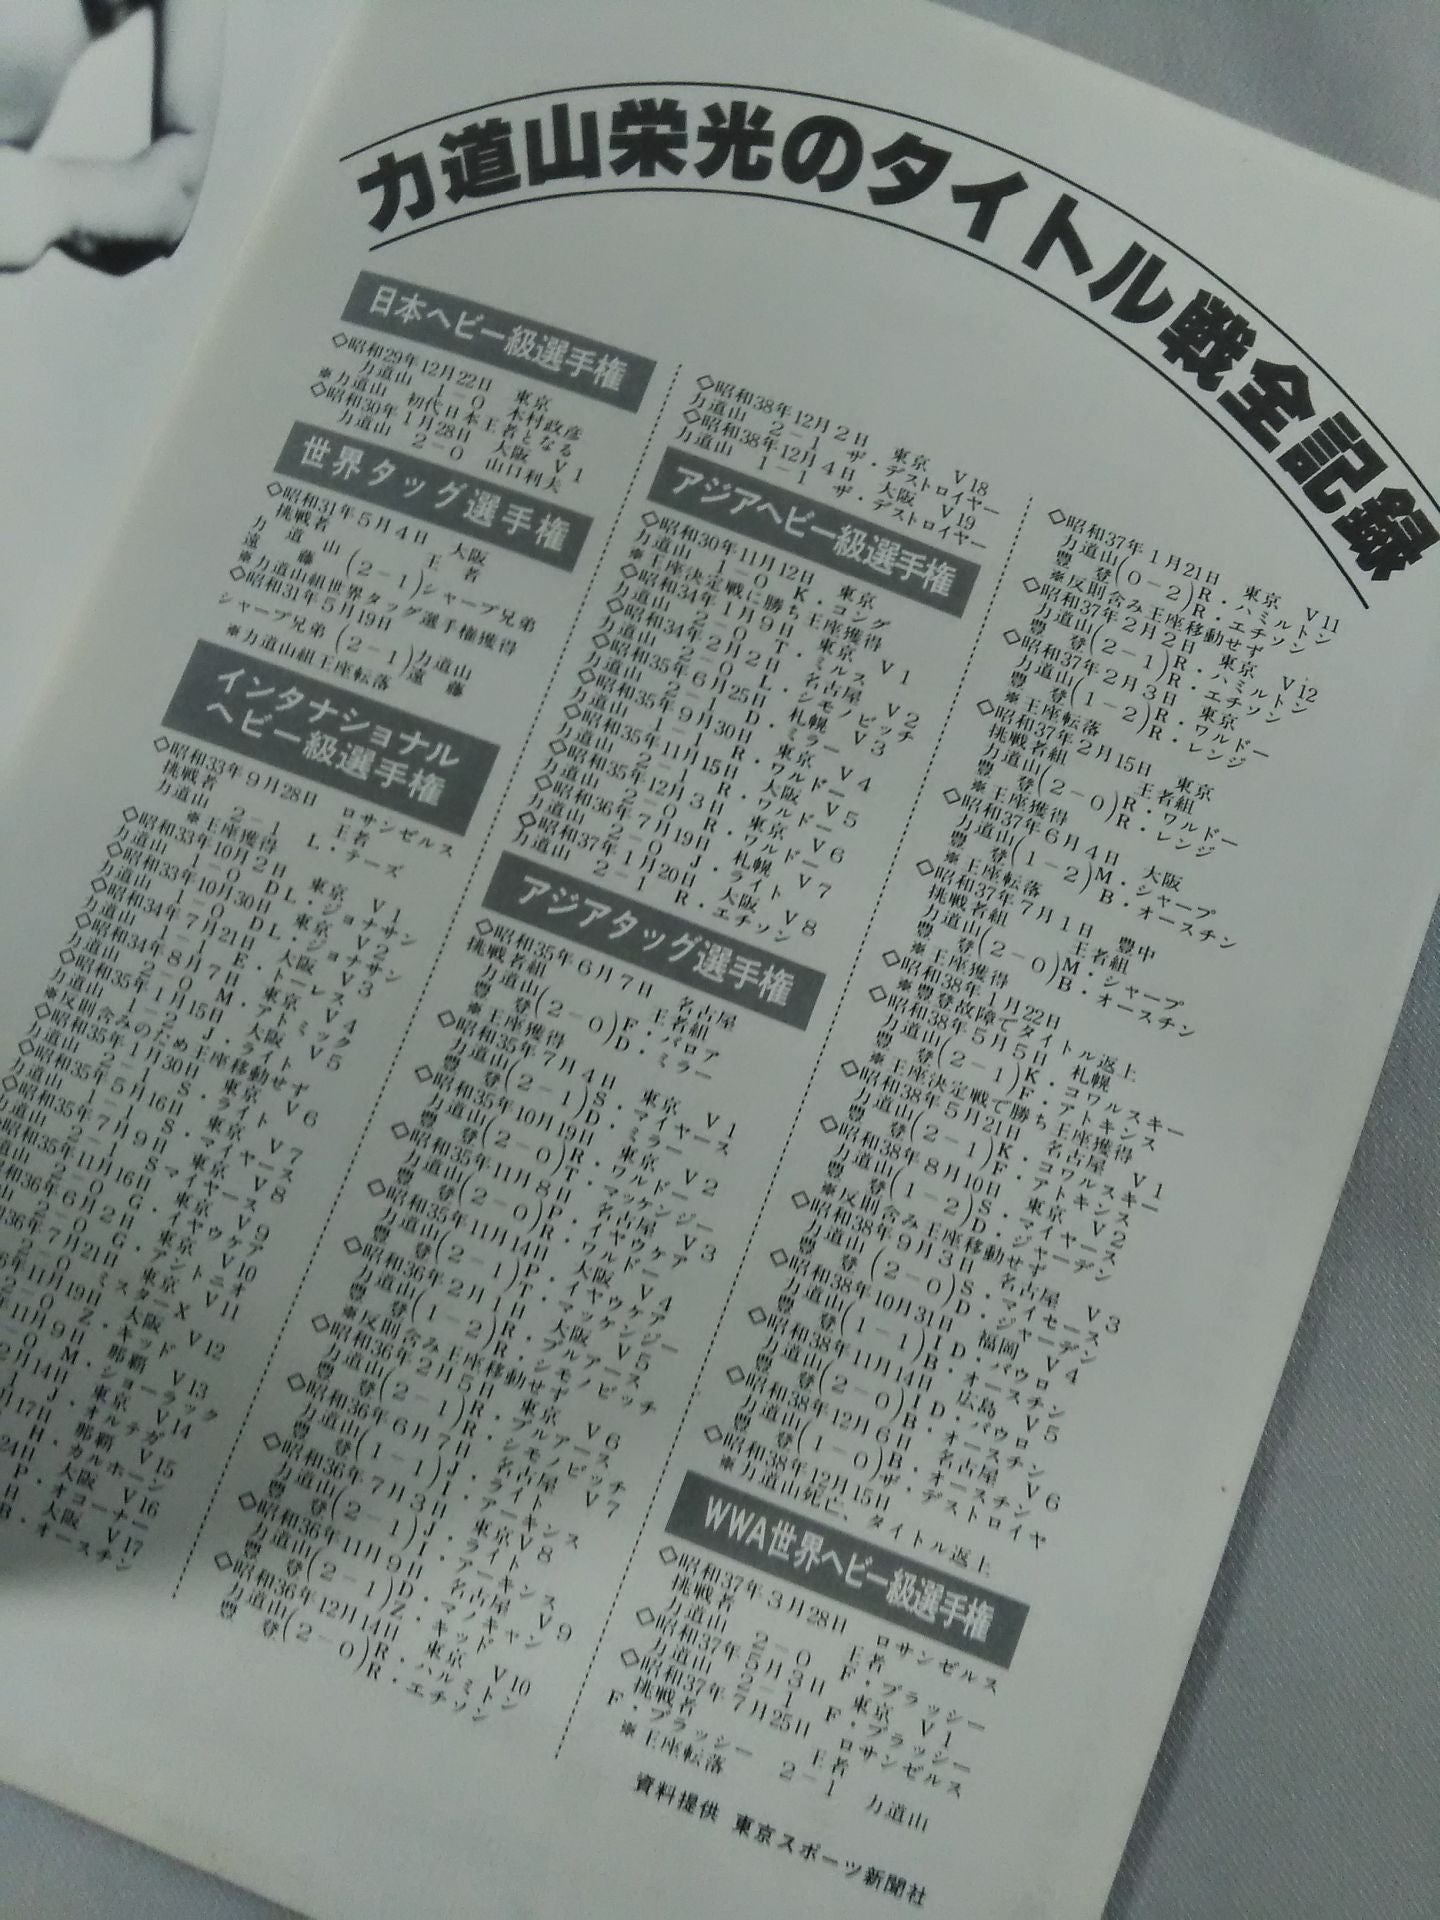 力道山栄光のタイトル戦全記録
日本ヘビー級選手権
◇昭和29年12月22日 東京
力道山 1－0 木村政彦
※力道山 初代日本王者となる
◇昭和30年1月28日 大阪 V1
力道山 2－0 山口利夫
世界タッグ選手権
◇昭和31年5月4日 大阪
挑戦者 王者
力道山
遠藤(2－1)シャープ兄弟
※力道山組世界タッグ選手権獲得
◇昭和31年5月19日
シャープ兄弟(2－1)力道山
遠藤
※力道山組王座転落
インタナショナル
ヘビー級選手権
◇昭和33年9月28日 ロサンゼルス
挑戦者 王者
力道山 2－1 L・テーズ
※王座獲得
◇昭和33年10月2日 東京 V1
力道山 1－0 DL・ジョナサン
◇昭和33年10月30日 東京 V2
力道山 1－0 DL・ジョナサン
◇昭和34年7月21日 大阪 V3
力道山 1－1 E・トーレス
◇昭和34年8月7日 東京 V4
力道山 2－0 M・アトミック
◇昭和35年1月15日 大阪 V5
力道山 1－2 J・ライト
※反則含みのため王座移動せず
◇昭和35年1月30日 東京 V6
力道山 2－1 S・ライト
◇昭和35年5月16日 東京 V7
力道山 1－1 S・マイヤース
◇昭和35年7月9日 東京 V8
2－1 Sマイヤース
昭和35年11月16日 東京 V9
2－0 G・イヤウケア
和36年6月2日 東京 V10
2－0 G・アントニオ
36年7月21日 東京 V11
2－0 ミスターX
6年11月19日 那覇 V12
2－0 Z・キッド
年11月9日 V13
0 M・ショーラック
2月14日 東京 V14
1 J・オルテガ
月17日 那覇 V15
H・カルホーン
24日 大阪 V16
P・オコーナー
日 大阪 V17
B・オースチン
◇昭和38年12月2日 東京 V18
力道山 2－1 ザ・デストロイヤー
◇昭和38年12月4日 大阪 V19
力道山 1－1 ザ・デストロイヤー
アジアヘビー級選手権
◇昭和30年11月12日 東京
力道山 1－0 K・コング
※王座決定戦に勝ち王座獲得
◇昭和34年1月9日 東京 V1
力道山 2－0 T・ミルス
◇昭和34年2月2日 名古屋 V2
力道山 2－0 L・シモノビッチ
◇昭和35年6月25日 札幌 V3
力道山 2－1 D・ミラー
◇昭和35年9月30日 東京 V4
力道山 1－1 R・ワルドー
◇昭和35年11月15日 大阪 V5
力道山 2－1 R・ワルドー
◇昭和35年12月3日 東京 V6
力道山 2－0 R・ワルドー
◇昭和36年7月19日 札幌 V7
力道山 2－0 J・ライト
◇昭和37年1月20日 大阪 V8
力道山 2－1 R・エチソン
アジアタッグ選手権
◇昭和35年6月7日 名古屋
挑戦者組 王者組
力道山(2－0)F・バロア
豊登 D・ミラー
※王座獲得
◇昭和35年7月4日 東京 V1
力道山(2－1)S・マイヤース
豊登 D・ミラー
◇昭和35年10月19日 東京 V2
力道山(2－0)R・ワルドー
豊登 T・マッケンジー
◇昭和35年11月8日 名古屋 V3
力道山(2－0)P・イヤウケア
豊登 R・ワルドー
◇昭和35年11月14日 大阪 V4
力道山(2－1)P・イヤウケア
豊登 T・マッケンジー
◇昭和36年2月1日 大阪 V5
力道山(1－2)R・ブルアノス
豊登 R・シモノビッチ
※反則含み王座移動せず
◇昭和36年2月5日 東京 V6
力道山(2－1)R・ブルアノス
豊登 R・シモノビッチ
◇昭和36年6月7日 名古屋 V7
力道山(1－1)J・ライト
豊登 I・アーキンス
◇昭和36年7月3日 東京 V8
力道山(2－1)J・ライト
豊登 I・アーキンス
◇昭和36年11月9日 名古屋 V9
力道山(2－1)D・マノキャン
豊登 Z・キッド
◇昭和36年12月14日 東京 V10
力道山(2－0)R・ハルミトン
豊登 R・エチソン
◇昭和37年1月21日 東京 V11
力道山(0－2)R・ハミルトン
豊登 R・エチソン
※反則含み王座移動せず
◇昭和37年2月2日 東京 V12
力道山(2－1)R・ハミルトン
豊登 R・エチソン
◇昭和37年2月3日 東京
力道山(1－2)R・ワルドー
豊登 R・レンジ
※王座転落
◇昭和37年2月15日 東京
挑戦者組 王者組
力道山(2－0)R・ワルドー
豊登 R・レンジ
※王座獲得
◇昭和37年6月4日 大阪
力道山(1－2)M・シャープ
豊登 B・オースチン
※王座転落
◇昭和37年7月1日 豊中
挑戦者組 王者組
力道山(2－0)M・シャープ
豊登 B・オースチン
※王座獲得
◇昭和38年1月22日
※豊登故障でタイトル返上
◇昭和38年5月5日 札幌
力道山(2－1)K・コワルスキー
豊登 F・アトキンス
※王座決定戦で勝ち王座獲得
◇昭和38年5月21日 名古屋 V1
力道山(2－1)K・コワルスキー
豊登 F・アトキンス
◇昭和38年8月10日 東京 V2
力道山(1－2)S・マイヤース
豊登 D・マジャーデ
※反則含み王座移動せず
◇昭和38年9月3日 名古屋 V3
力道山(2－0)S・マイセース
豊登 D・ジャーデン
◇昭和38年10月31日 福岡 V4
力道山(1－1)I D・パウロ
豊登 B・オースチン
◇昭和38年11月14日 広島 V5
力道山(2－0)I D・パウロ
豊登 B・オースチン
◇昭和38年12月6日 名古屋 V6
力道山(1－0)B・オースチン
豊登 ザ・デストロイヤ
◇昭和38年12月15日
※力道山死亡、タイトル返上
WWA世界ヘビー級選手権
◇昭和37年3月28日 ロサンゼルス
挑戦者 王者
力道山 2－0 F・ブラッシー
◇昭和37年5月3日 東京 V1
力道山 2－1 F・ブラッシー
◇昭和37年7月25日 ロサンゼルス
挑戦者 王者
F・ブラッシー 2－1 力道山
※王座転落
資料提供 東京スポーツ新聞社